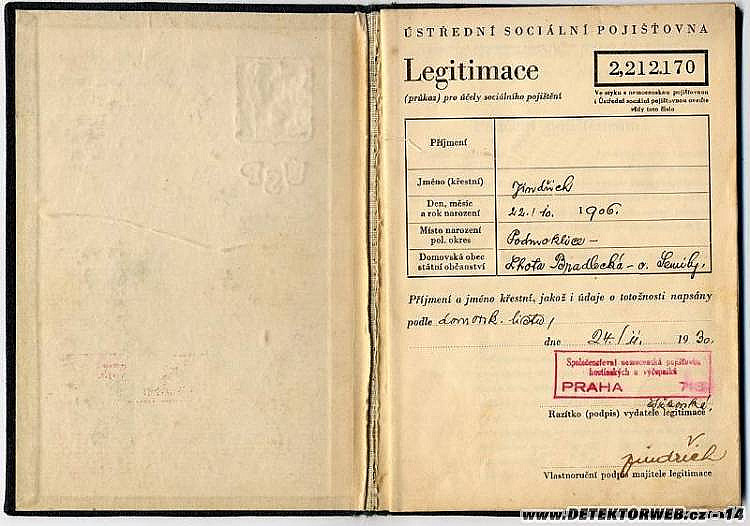 ÚSTŘEDNÍ SOCIÁLNÍ POJIŠŤOVNA
Legitimace
2,212.170
(průkaz) pro účely sociálního pojištění
Ve styku s nemocenskou pojišťovnou
i Ústřední sociální pojišťovnou uveďte
vždy toto číslo
Příjmení
Jméno (křestní)
Jindřich
Den, měsíc
a rok narození
22./10. 1906.
Místo narození
pol. okres
Podmoklice –
Domovská obec
státní občanství
Lhota Bradlecká – o. Semily.
Příjmení a jméno křestní, jakož i údaje o totožnosti napsány
podle domovsk. listu,
dne 24./II. 1930.
Společenstevní nemocenská pojišťovna
hostinských a výčepníků
PRAHA
Razítko (podpis) vydatele legitimace
Jindřich
Vlastnoruční podpis majitele legitimace
ÚSP
www.DETEKTORWEB.cz
14